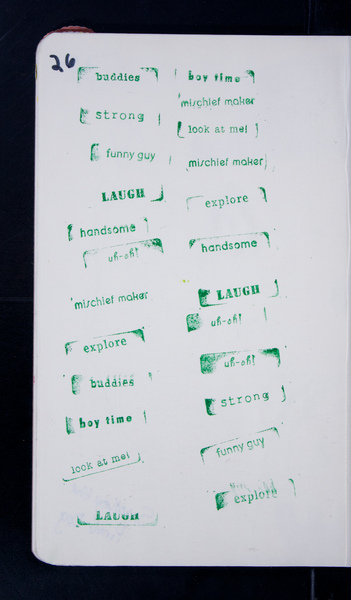 26
buddies
strong
funny guy
LAUGH
handsome
uh-oh!
mischief maker
explore
buddies
boy time
look at me!
LAUGH
boy time
mischief maker
look at me!
mischief maker
explore
handsome
LAUGH
uh-oh!
uh-oh!
strong
funny guy
explore